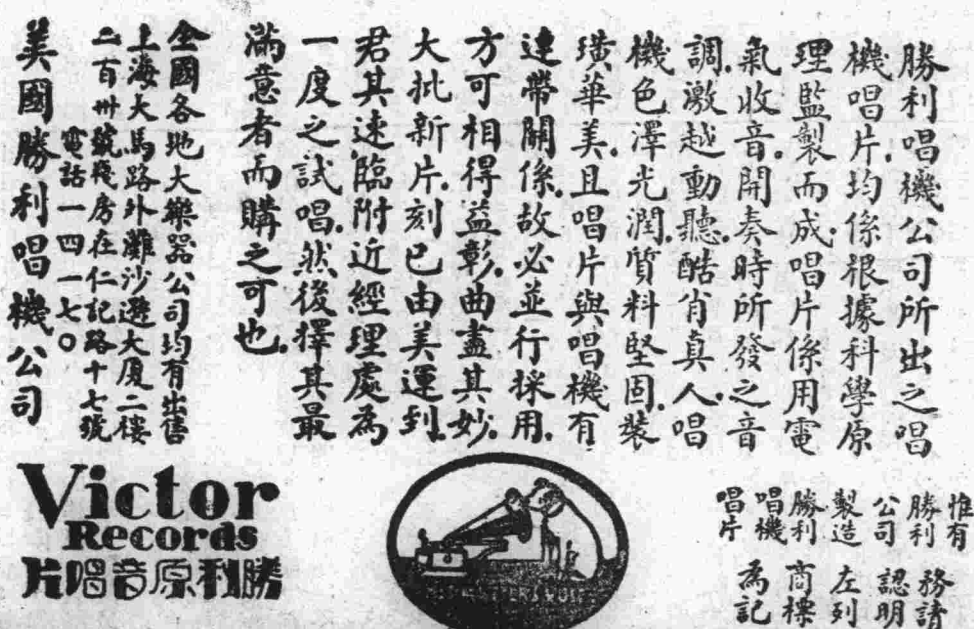 勝利唱機公司所出之唱
機唱片.均係根據科學原
理監製而成.唱片係用電
氣收音.開奏時所發之音
調.激越動聽.酷肖真人.唱
機色澤光潤.質料堅固.裝
璜華美.且唱片與唱機有
連帶關係.故必並行採用.
方可相得益彰.曲盡其妙.
大批新片.刻已由美運到.
君其速臨附近經理處為
一度之試唱.然後擇其最
滿意者而購之可也.
全國各地大樂器公司均有出售
上海大馬路外灘沙遜大厦二樓
二百卅號棧房在仁記路十七號
電話一四一七〇
美國勝利唱機公司
惟有
勝利
公司
製造
勝利
唱機
唱片
務請
認明
左列
商標
為記
Victor
Records
勝利原音唱片